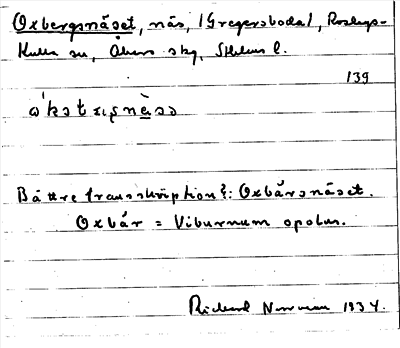 Oxbergsnäset, näs, (Gregersboda), Roslags-
Kulla sn, Åkers skg, Sthlms l.
139
Bättre transskription?: Oxbärsnäset.
Oxbär = Viburnum opolus.
Rickard Norrman 1934.